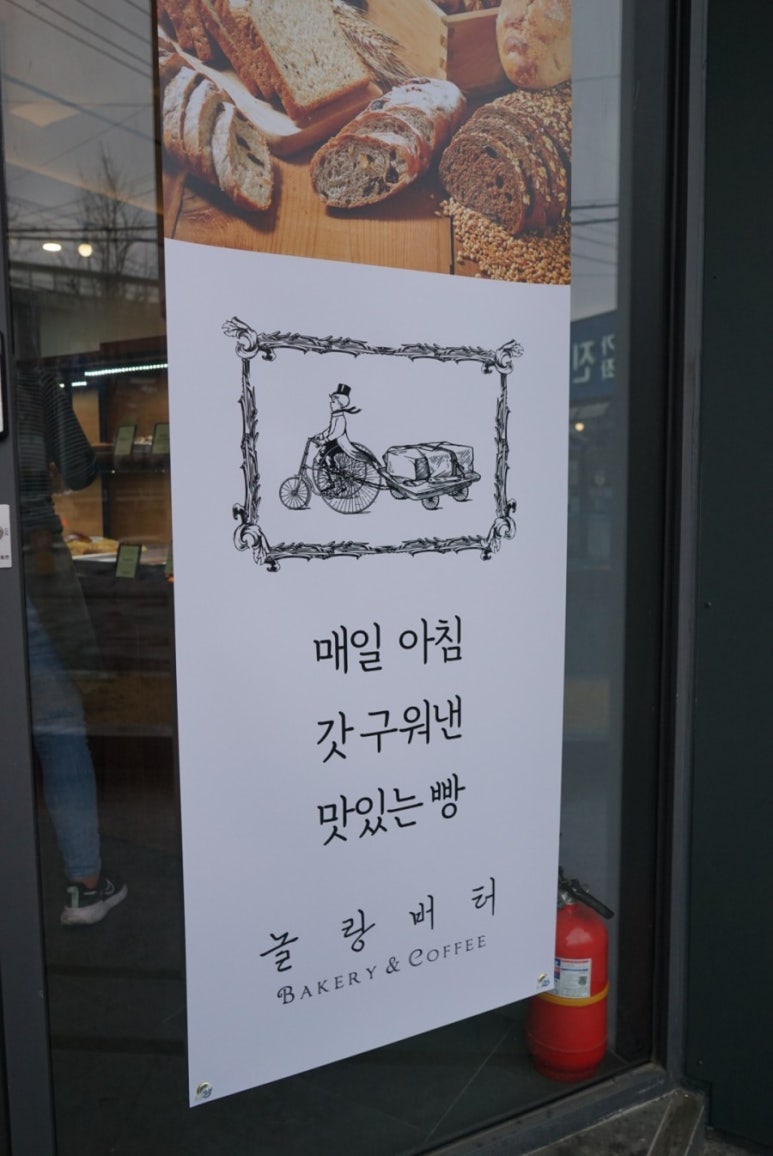 매일 아침
갓 구워낸
맛있는 빵
놀랑버터
BAKERY & COFFEE